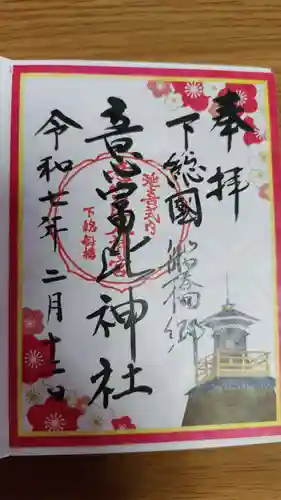 奉拝
下總國 船橋郷
意富比神社
令和七年 二月十二日
延喜式内
下総船橋